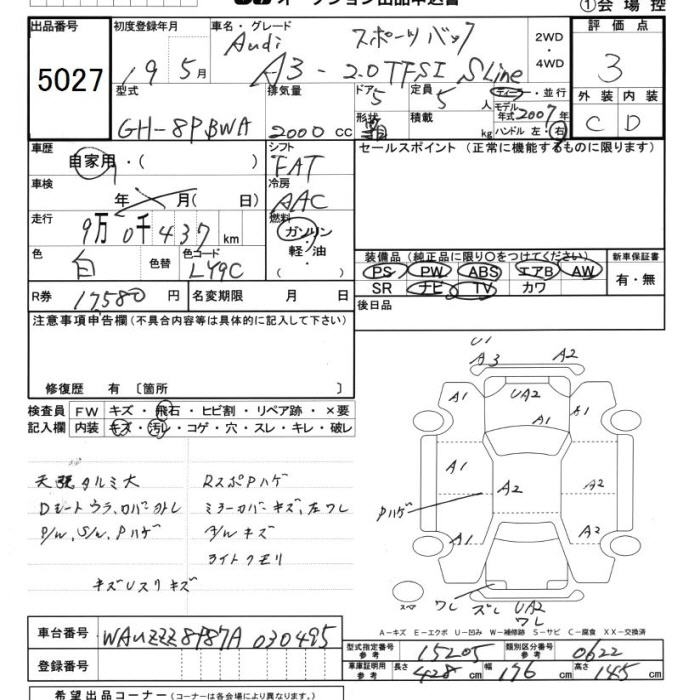 オークション出品申込書
①会場控
出品番号 5027
初度登録年月 19 5月
車名・グレード Audi スポーツバック
A3 - 2.0TFSI SLine
2WD・4WD
評価点 3
外装 C
内装 D
型式 GH-8PBWA
排気量 2000 cc
ドア 5
定員 5 人
形状
積載 kg
ディーラー・並行
モデル年式 2007年
ハンドル 左・右
車歴 自家用・( )
シフト FAT
セールスポイント (正常に機能するものに限ります)
車検 年 月(日)
冷房 AAC
走行 9万0千437 km
燃料 ガソリン・軽・油 ( )
色 白
色替
色コード LY9C
装備品 (純正品に限り○をつけてください)
PS PW ABS エアB AW
SR ナビ TV カワ
新車保証書 有・無
R券 17580 円
名変期限 月 日
後日品
注意事項申告欄 (不具合内容等は具体的に記入して下さい)
修復歴 有 〔箇所 〕
検査員記入欄
FW キズ・飛石・ヒビ割・リペア跡・×要
内装 キズ・汚レ・コゲ・穴・スレ・キレ・破レ
天張タルミ大
Dシートウラ、カバー外レ
P/W、S/W、Pハゲ
RスポPハゲ
ミラーカバーキズ、左ワレ
A/Wキズ
ライトクモリ
キズUスリキズ
U1
A3 A2
A1 UA2 A1
A1
A1 A2
Pハゲ
A1 A2
スペア ワレ ズレ UA2
ワレ
A-キズ E-エクボ U-凹み W-補修跡 S-サビ C-腐食 XX-交換済
車台番号 WAUZZZ8P87A030495
登録番号
型式指定番号 参考 15205
類別区分番号 参考 0622
車庫証明用 参考 長さ 428 cm 幅 176 cm 高さ 145 cm
希望出品コーナー (コーナーは各会場により異なります。)